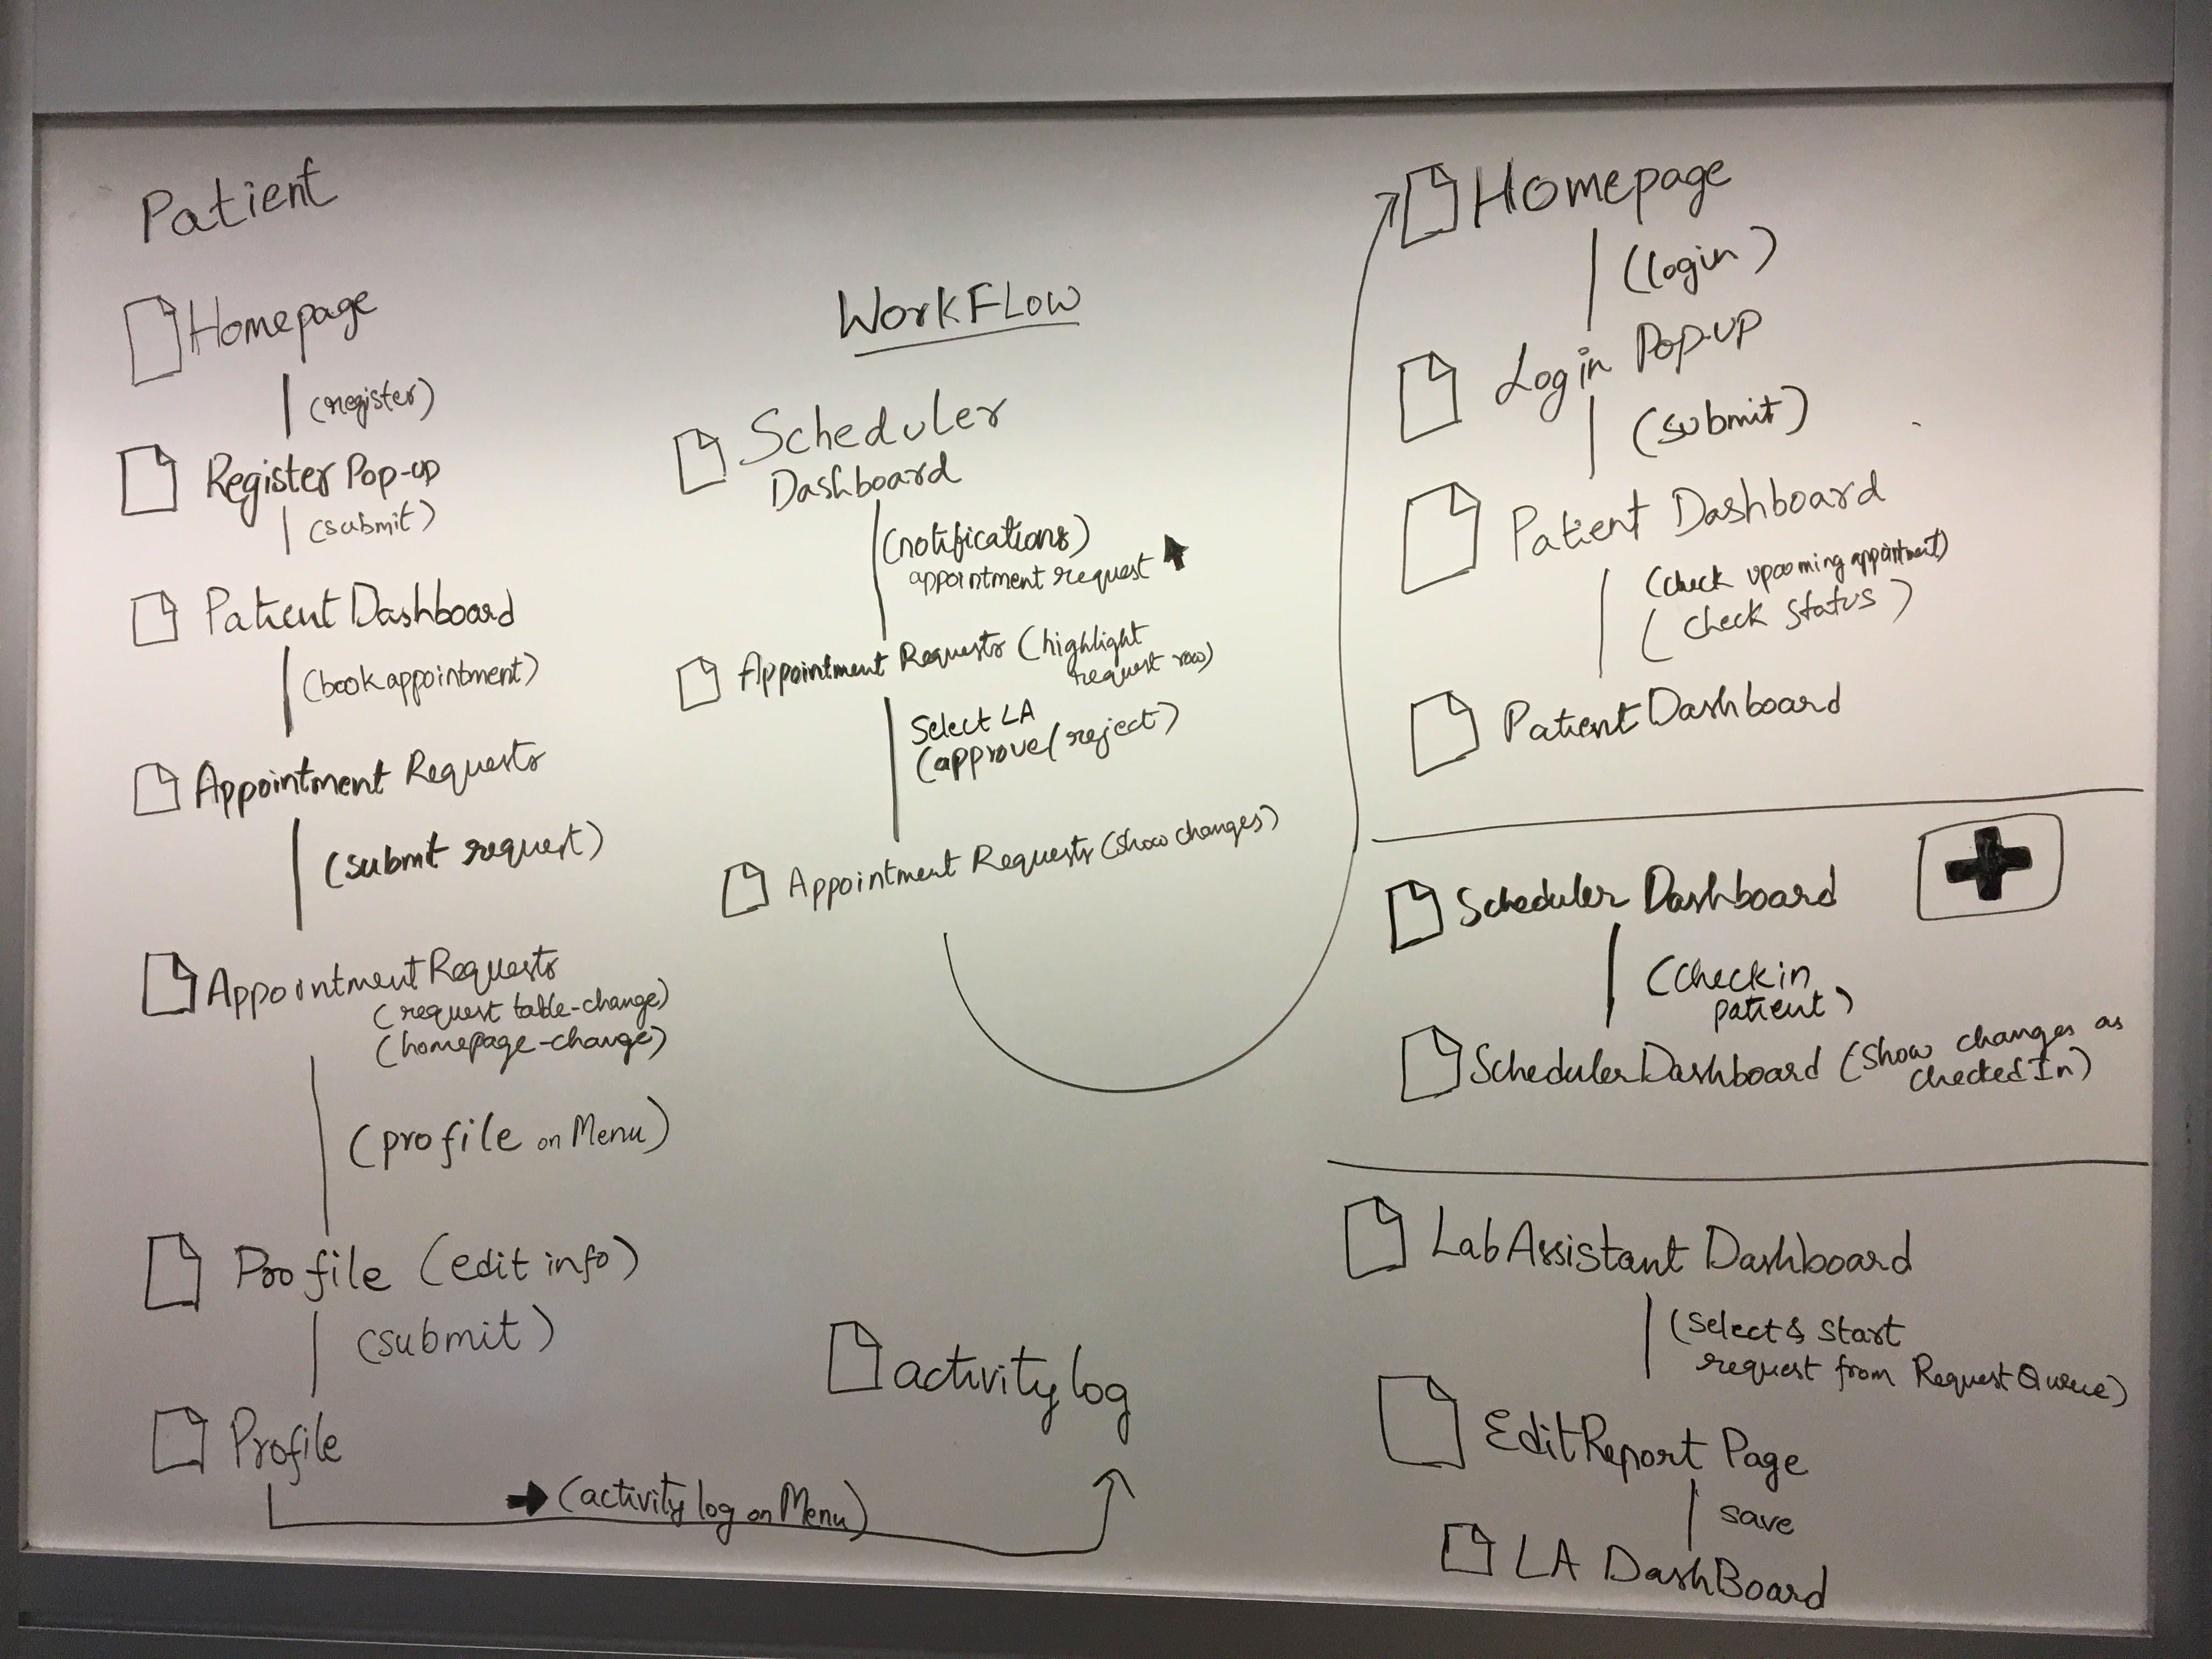 Patient
Homepage
(register)
Register Pop-up
(submit)
Patient Dashboard
(book appointment)
Appointment Requests
(submit request)
Appointment Requests
(request table-change)
(homepage-change)
(profile on Menu)
Profile (edit info)
(submit)
Profile
(activity log on Menu)
activity log
WORKFLOW
Scheduler
Dashboard
(notifications)
appointment request
Appointment Requests (highlight
request row)
Select LA
(approve/reject)
Appointment Requests (show changes)
Homepage
(login)
Login Pop-up
(submit)
Patient Dashboard
(check upcoming appointment)
(check status)
Patient Dashboard
Scheduler Dashboard
(check in
patient)
Scheduler Dashboard (show changes as
checked In)
Lab Assistant Dashboard
(select & start
request from Request Queue)
Edit Report Page
save
LA DashBoard